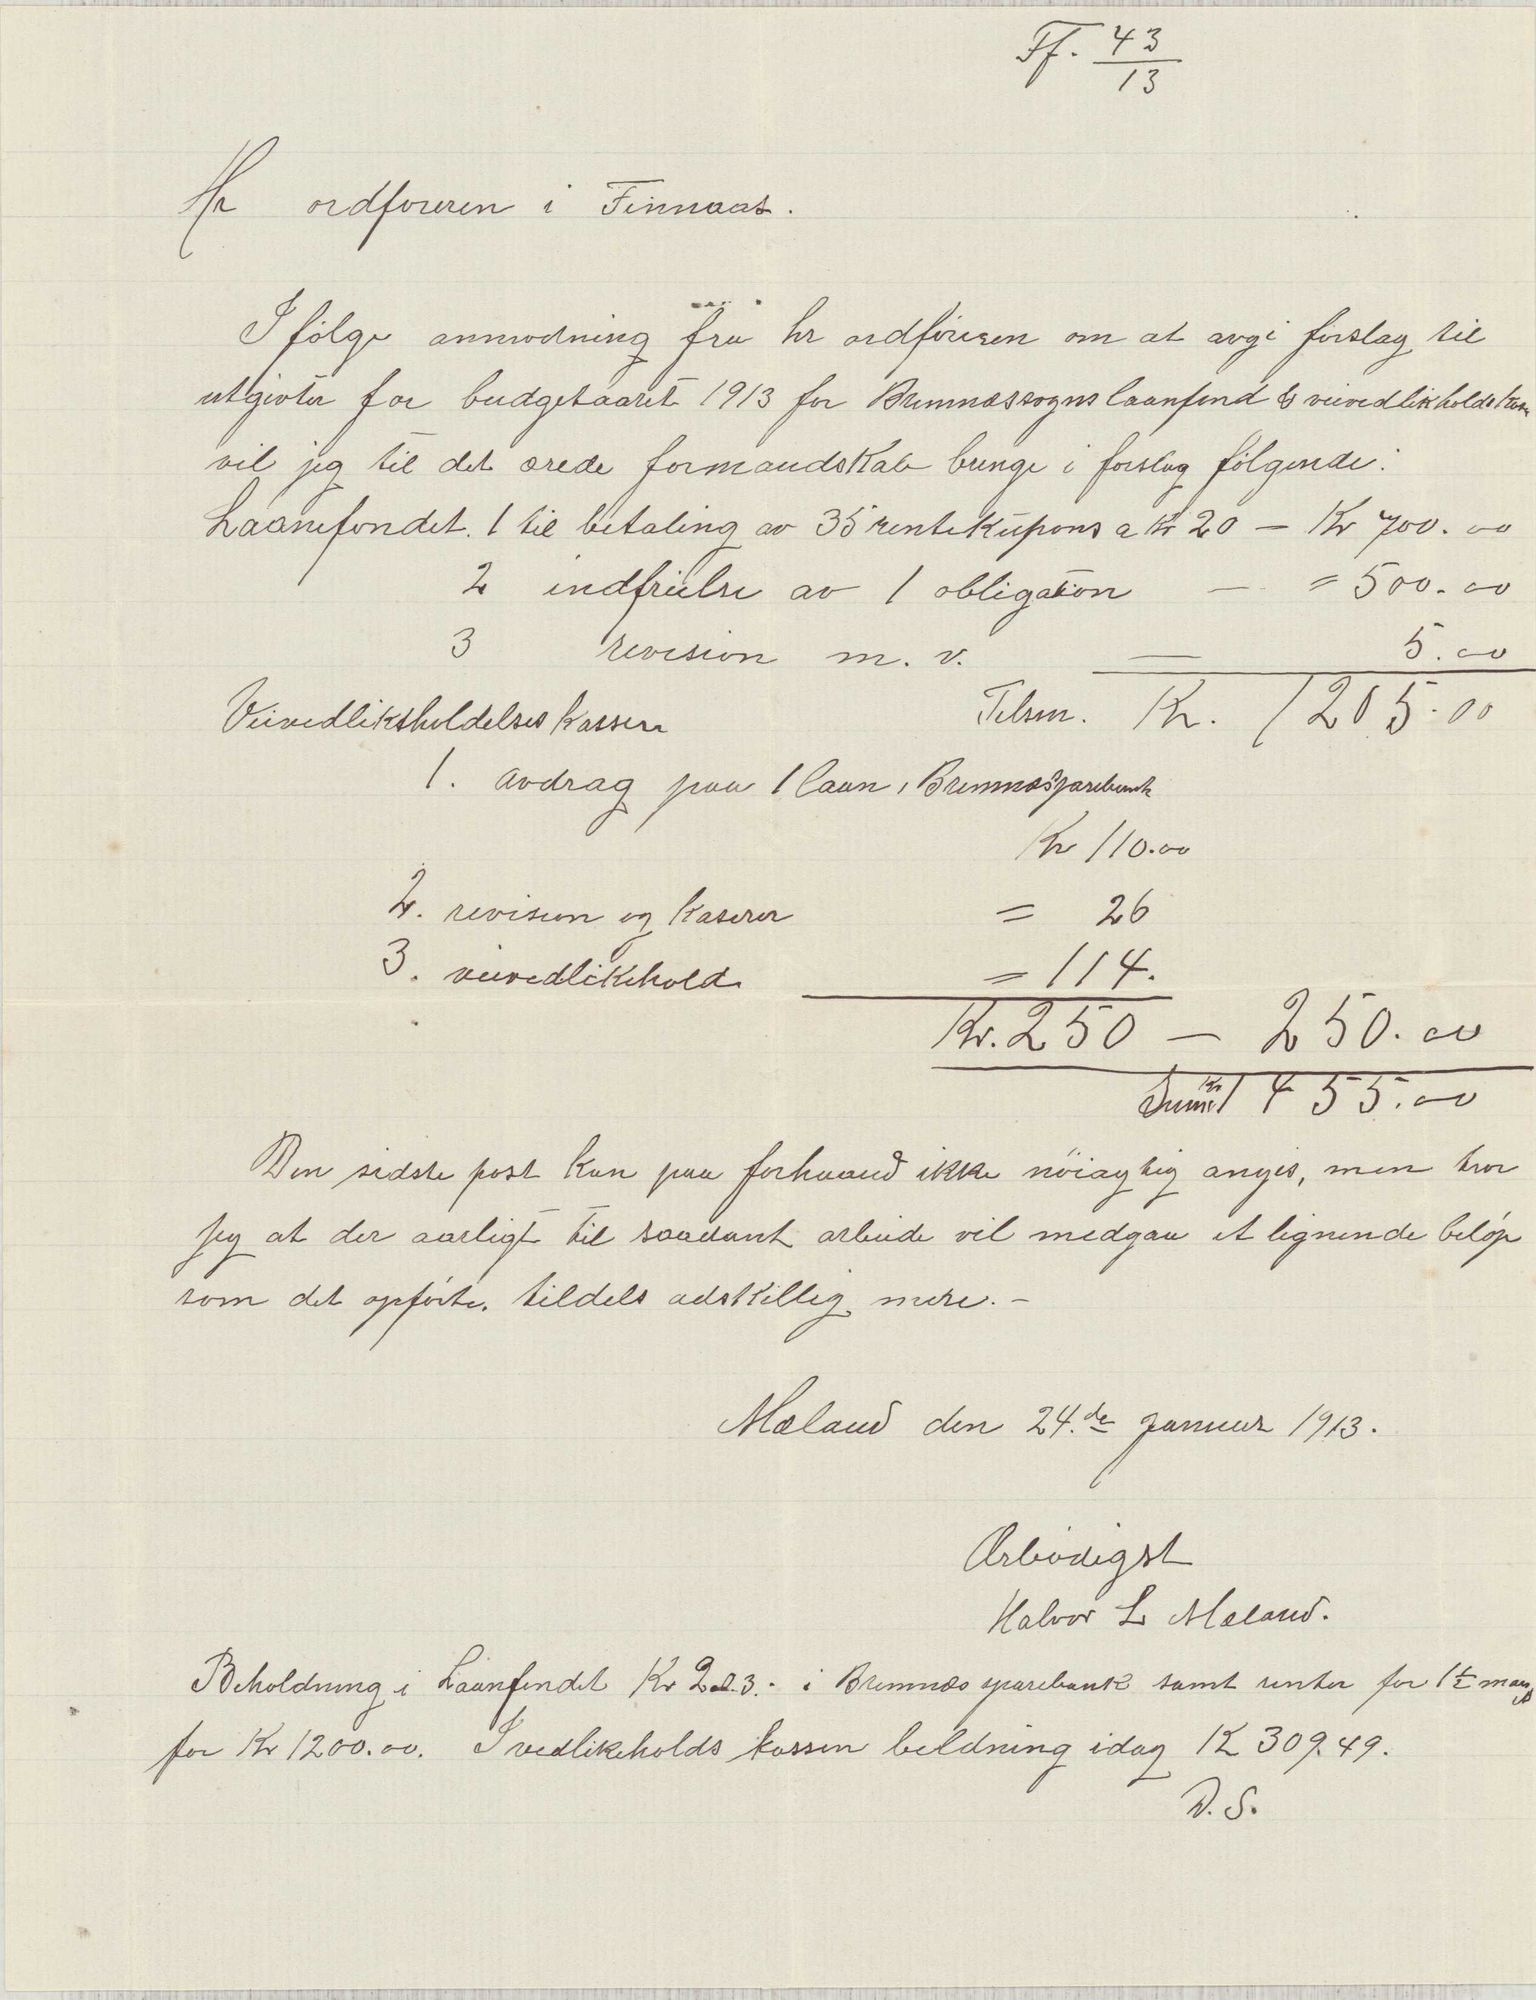 Ff. 43
13
Hr ordføreren i Finnaas.
Ifølge anmodning fra hr ordføreren om at avgi forslag til
utgivter for budgetaaret 1913 for Bremnæssogns laanfond & veivedlikholdskasse
vil jeg til det ærede formandskab bringe i forslag følgende:
Laanefondet. 1 til betaling av 35 rentekupons a Kr 20 — Kr 700.00
2 indfrielse av 1 obligation — = 500.00
3 revision m. v. — 5.00
Veivedliksholdelses kassen Tilsm. Kr. 1205.00
1. avdrag paa 1 laan i Bremnæs sparebank
Kr 110.00
2. revision og kaserer = 26
3. veivedlikehold = 114.
Kr. 250 — 250.00
Sum Kr 1455.00
Den sidste post kan paa forhaand ikke nöiagtig angis, men tror
jeg at der aarligt til saadant arbeide vil medgaa et lignende beløp
som det opførte, tildels adskillig mere. —
Mæland den 24.de januar 1913.
Ærbödigst
Halvor L Mæland.
Beholdning i Laanfondet Kr i Bremnæs sparebank samt renter for 1/2
for Kr 1200.00. I vedlikeholds kassen beldning idag Kr 309.49.
D. S.